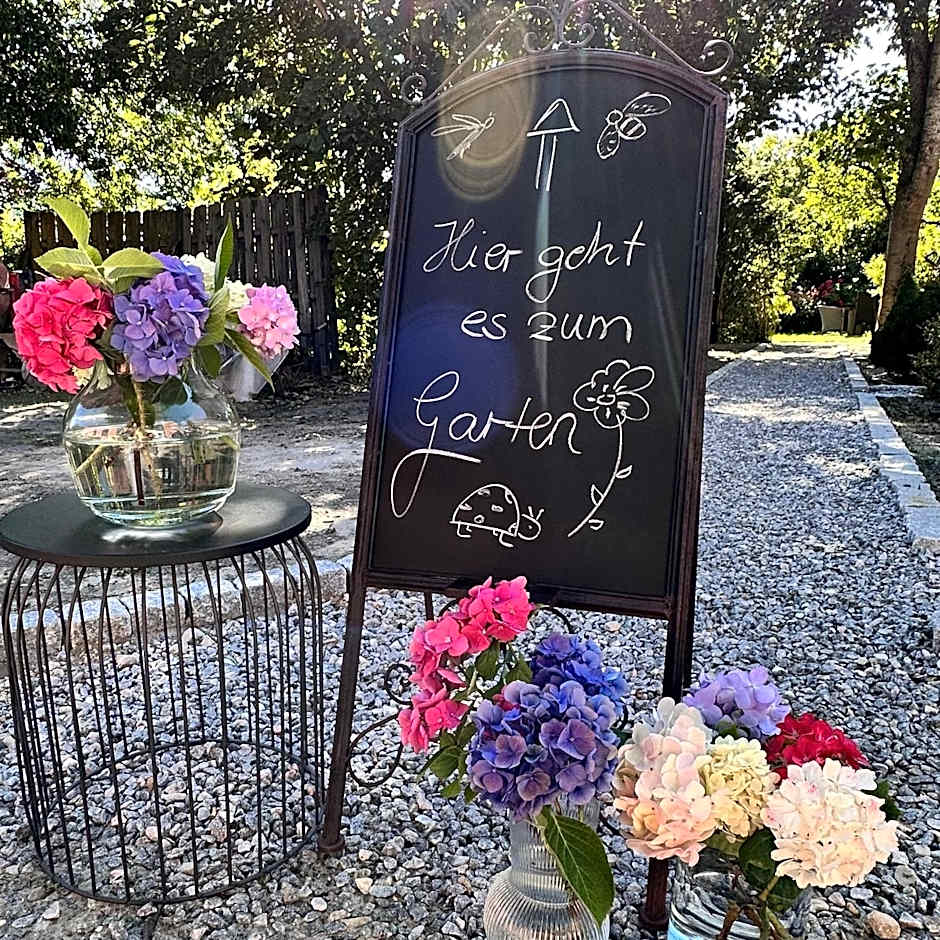 Hier geht
es zum
Garten